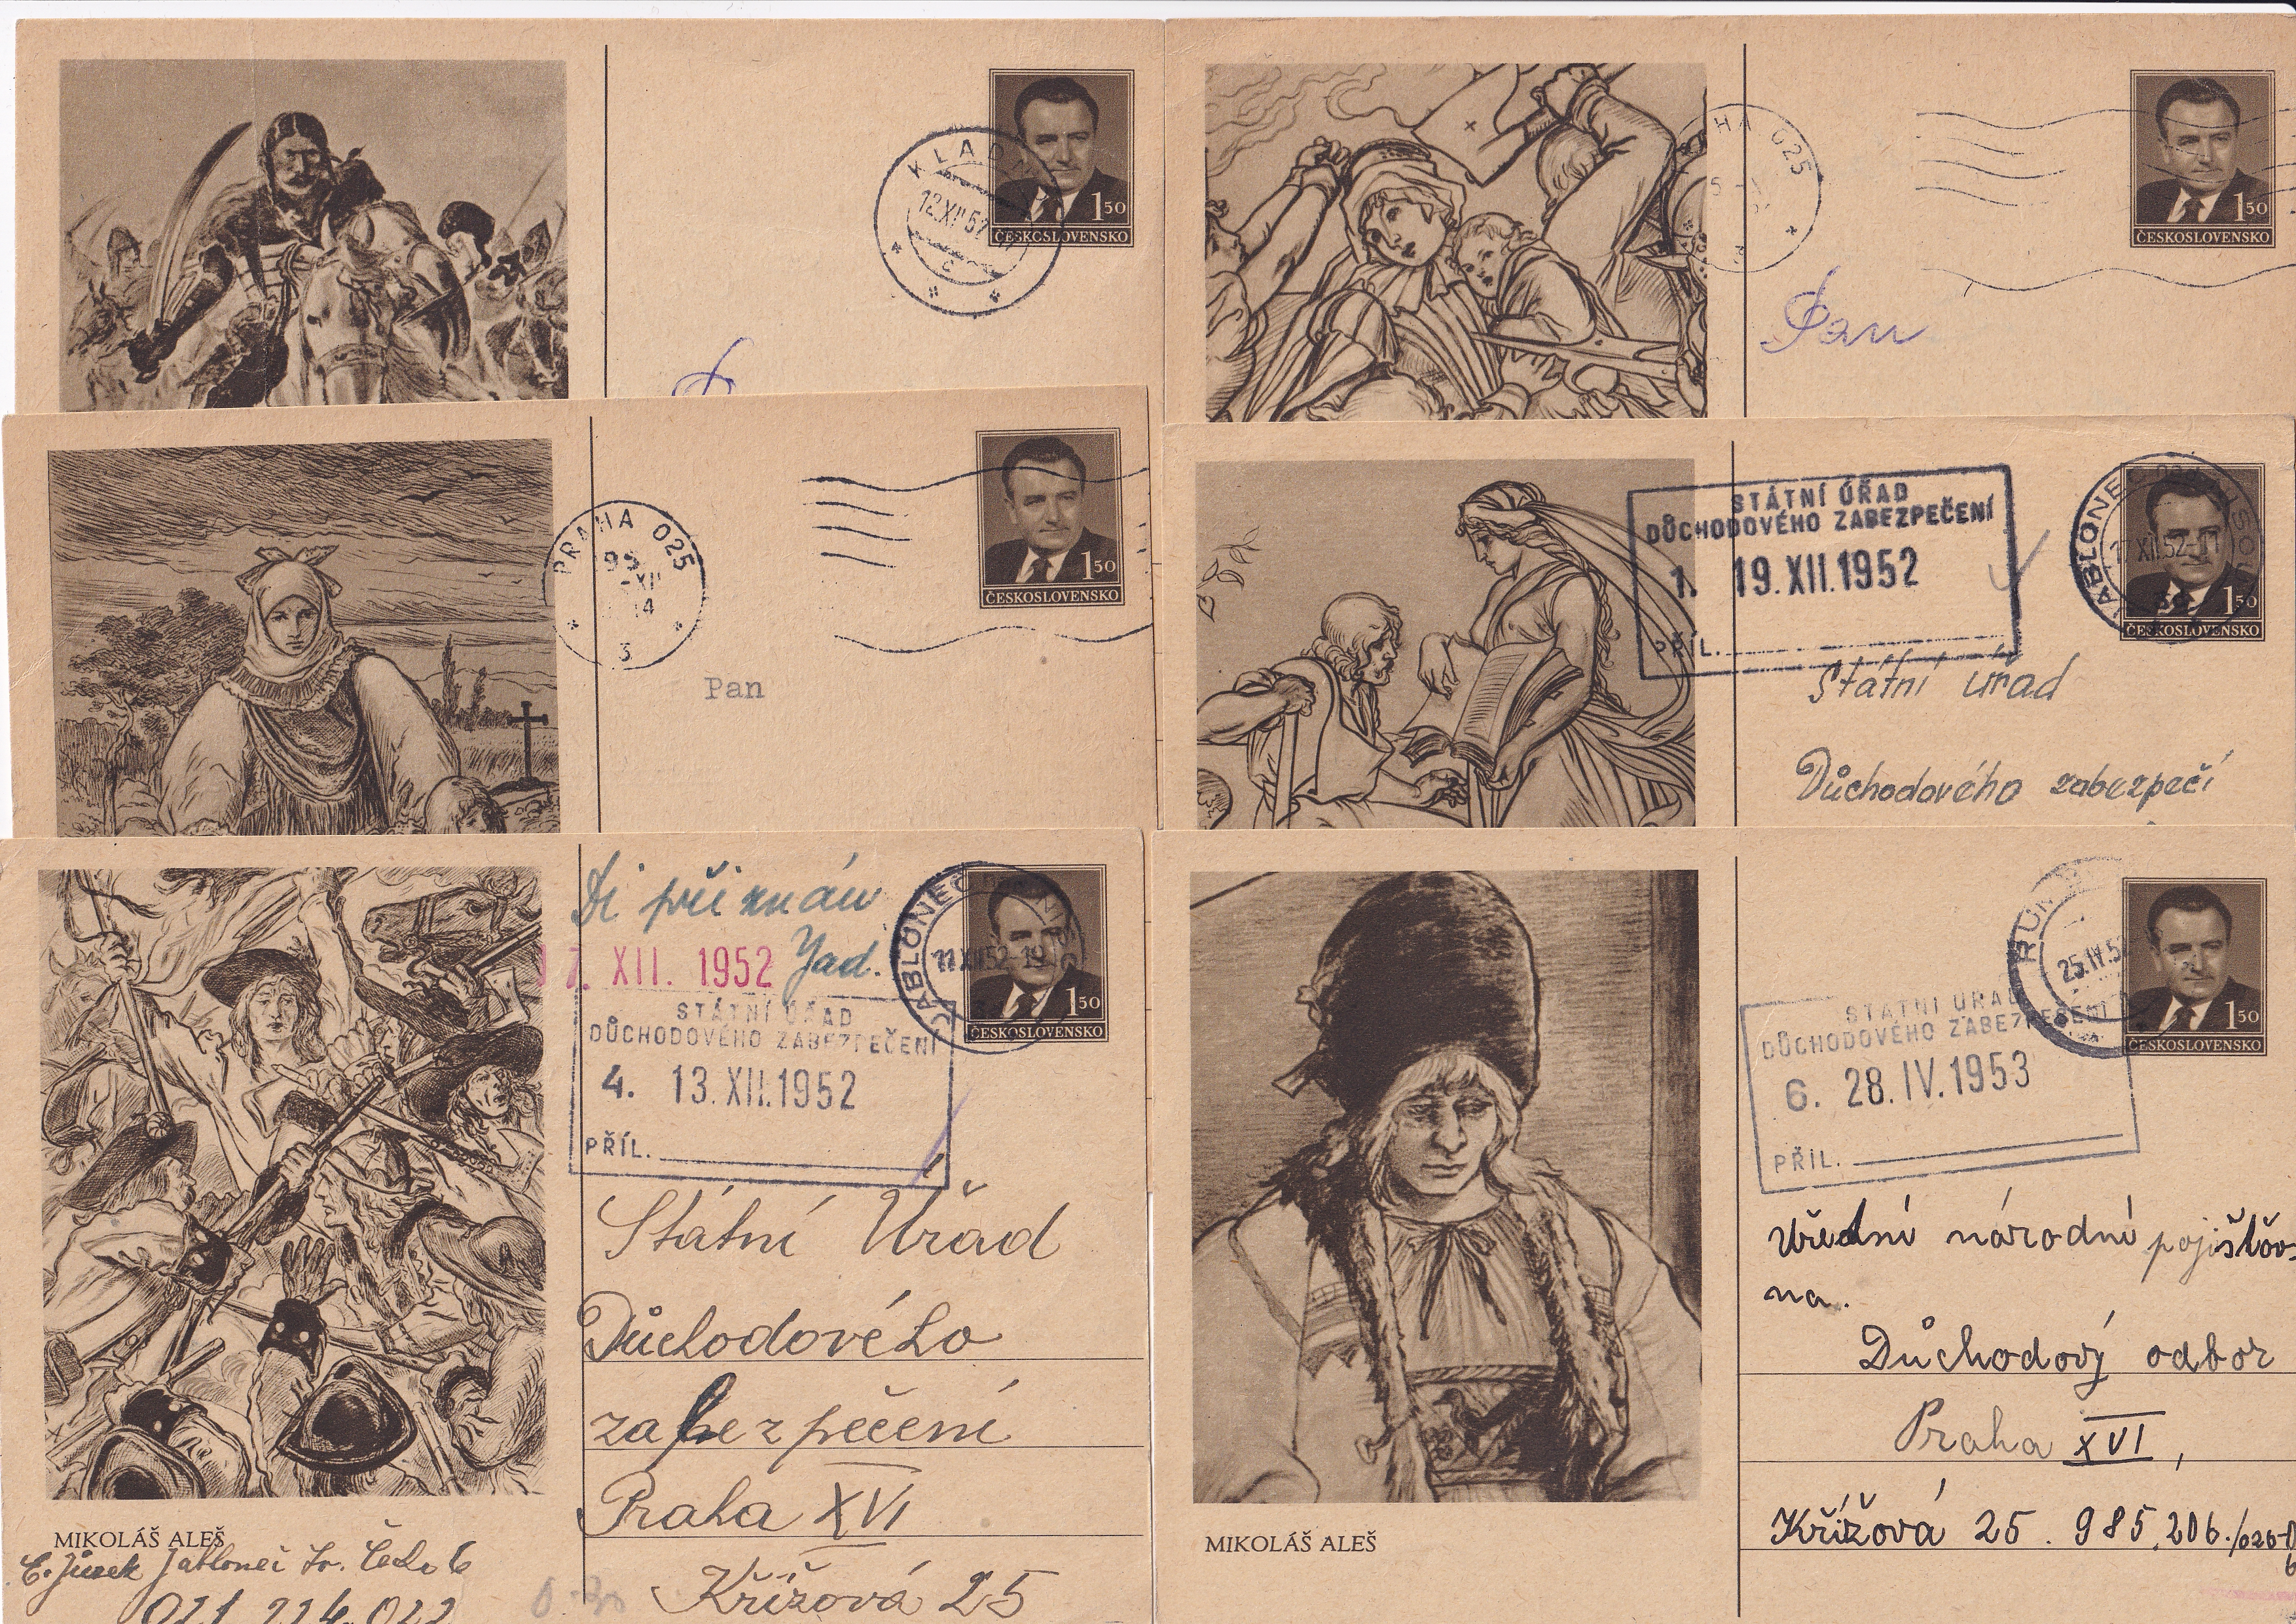 KLADNO
12.XII.52
C
1 50
ČESKOSLOVENSKO
HA 025
3
1 50
ČESKOSLOVENSKO
Pan
PRAHA 025
-XII
14
3
1 50
ČESKOSLOVENSKO
Pan
STÁTNÍ ÚŘAD
DŮCHODOVÉHO ZABEZPEČENÍ
1. 19.XII.1952
PŘÍL.
JABLONEC
17.XII.52-11
1 50
ČESKOSLOVENSKO
Státní úřad
Důchodového zabezpečí
Di přiznán
17. XII. 1952 Jad.
STÁTNÍ ÚŘAD
DŮCHODOVÉHO ZABEZPEČENÍ
4. 13.XII.1952
PŘÍL.
JABLONEC
11.XII.52-19
1 50
ČESKOSLOVENSKO
Státní Úřad
Důchodového
zabezpečení
Praha XVI
Křížová 25
MIKOLÁŠ ALEŠ
E. Jůzek Jablonec
021 224 022
25.IV.5
1 50
ČESKOSLOVENSKO
STÁTNÍ ÚŘAD
DŮCHODOVÉHO ZABEZPEČENÍ
6. 28.IV.1953
PŘÍL.
Úřední národní pojišťov-
na.
Důchodový odbor
Praha XVI,
Křížová 25. 985.206./026-0
MIKOLÁŠ ALEŠ